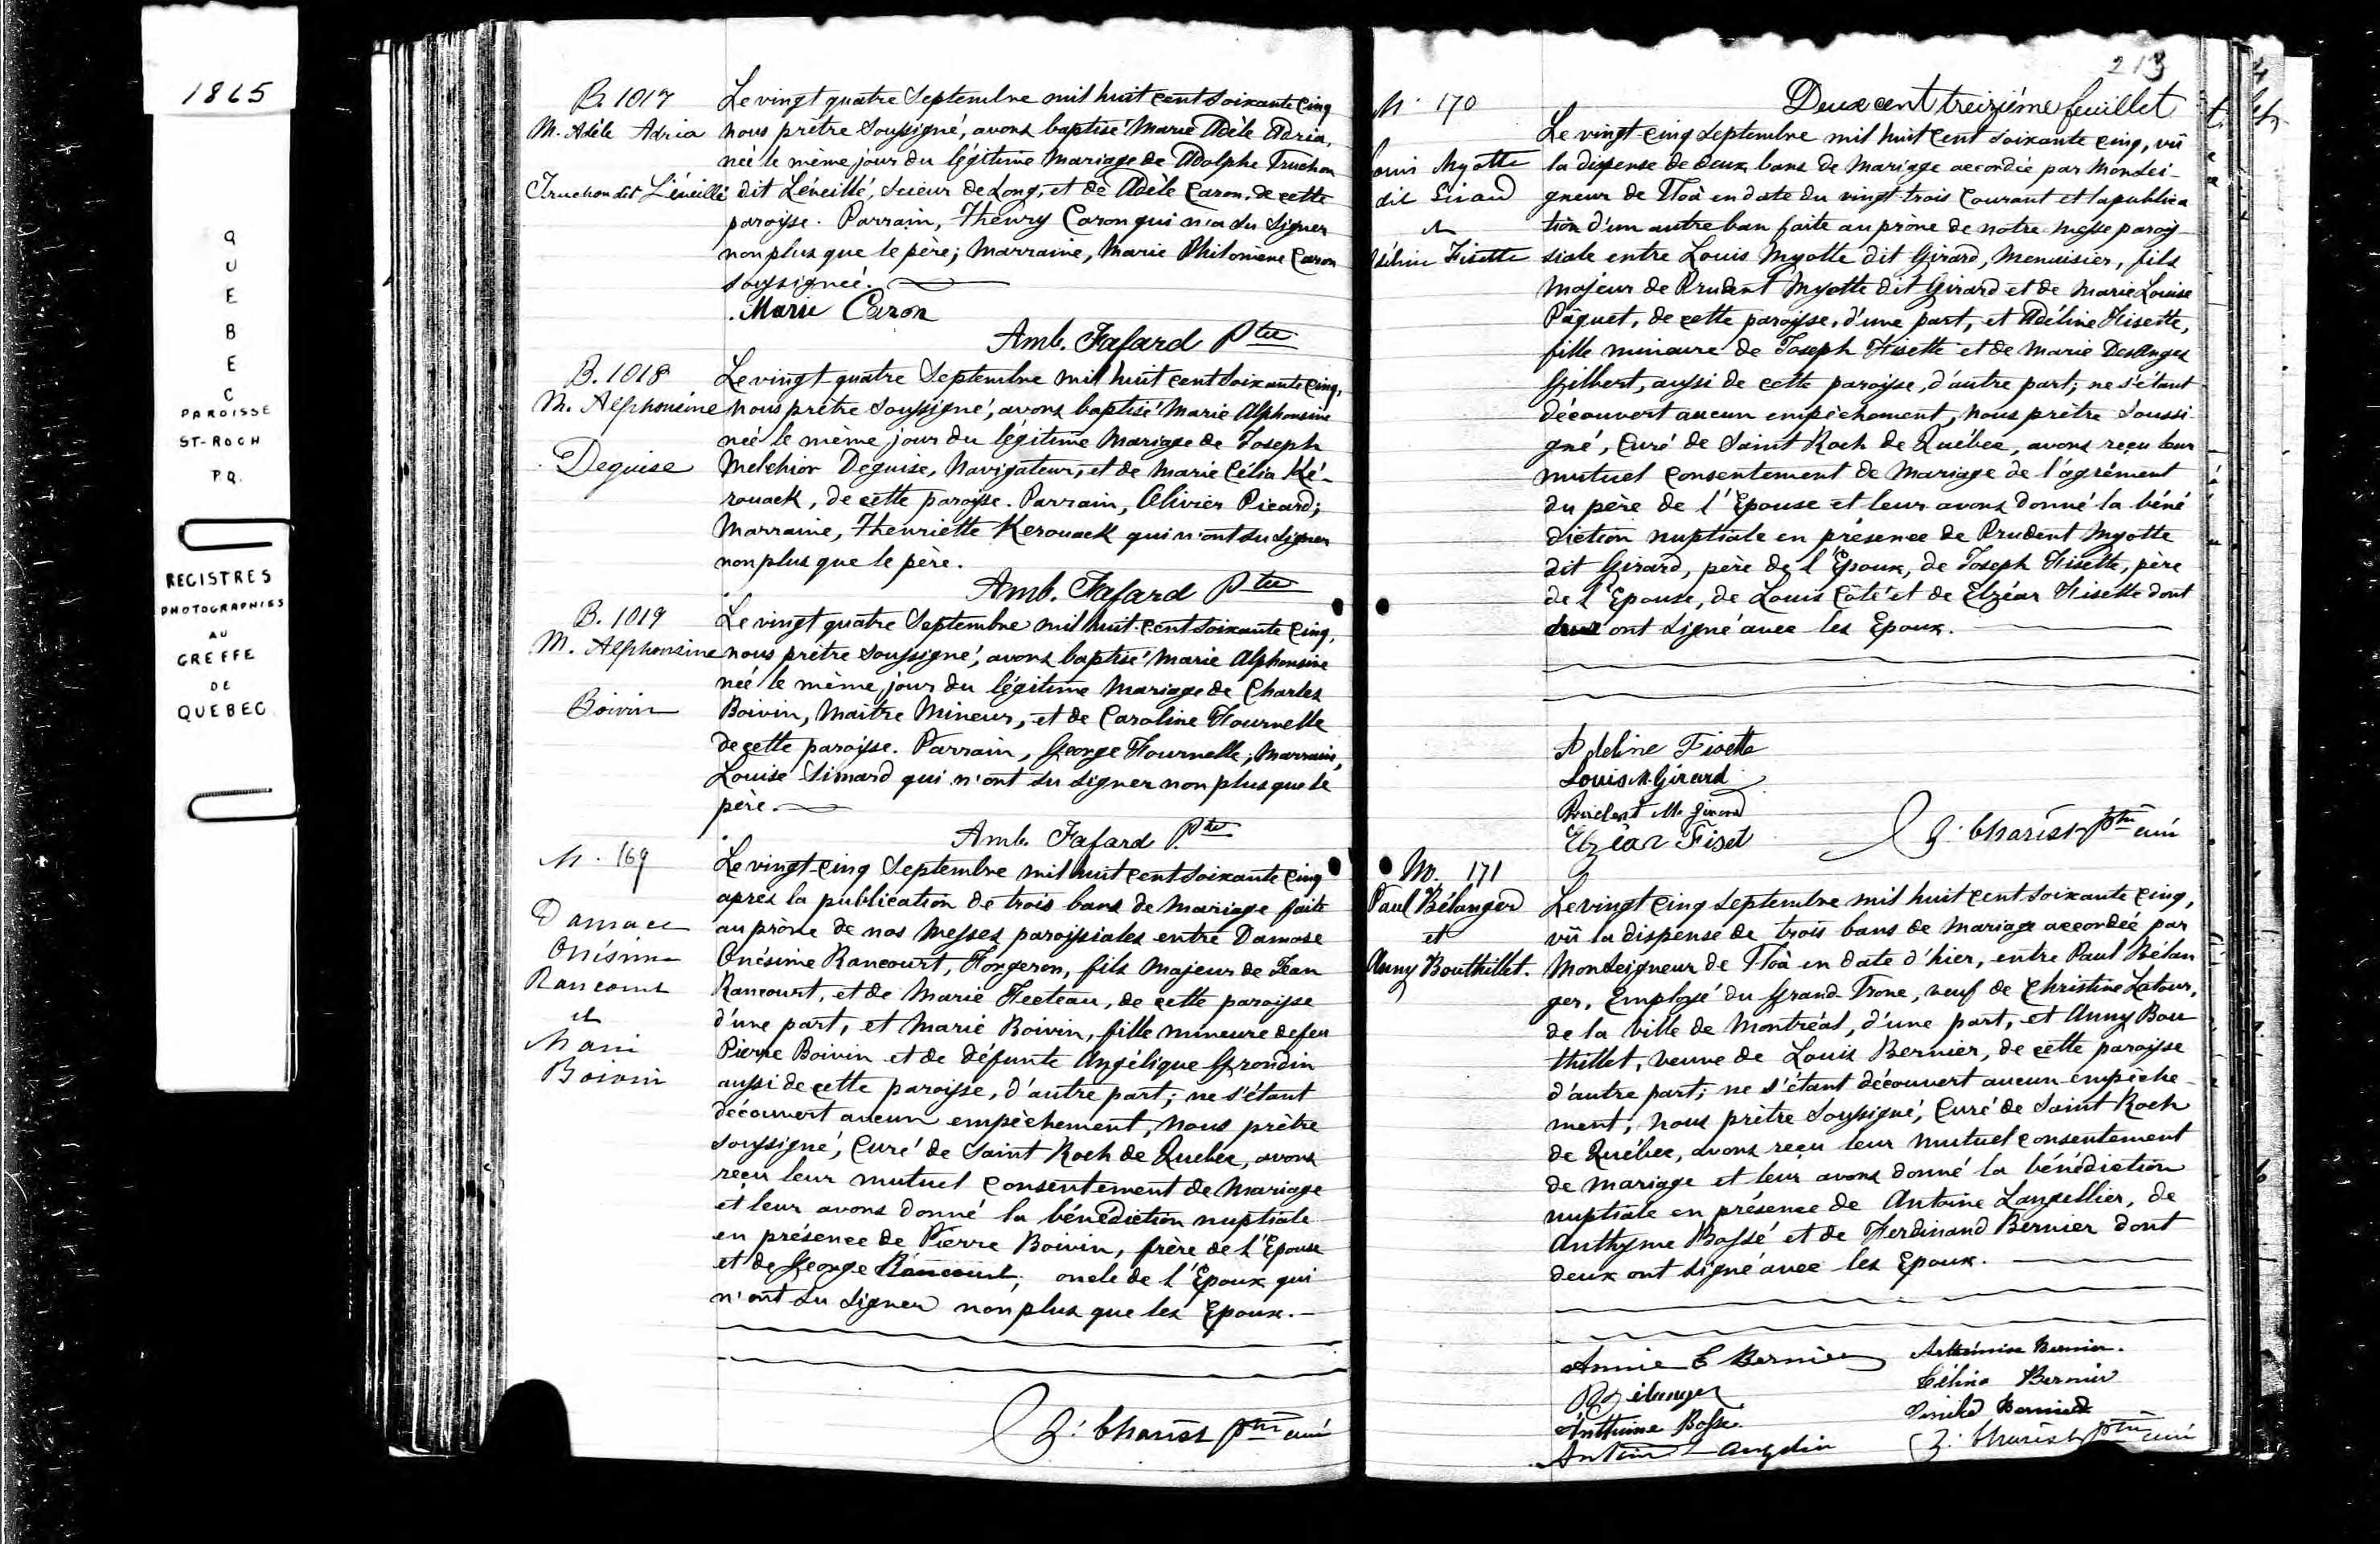 1865
QUEBEC
PAROISSE
ST-ROCH
P.Q.
REGISTRES
PHOTOGRAPHIES
AU
GREFFE
DE
QUEBEC
B. 1017
M. Adèle Adria
Truchon dit Léveillé
Le vingt quatre Septembre mil huit cent soixante cinq
nous prêtre soussigné, avons baptisé Marie Adèle Adria,
née le même jour du légitime mariage de Adolphe Truchon
dit Léveillé, scieur de long, et de Adèle Caron, de cette
paroisse. Parrain, Thenry Caron qui n'a su signer
non plus que le père; marraine, Marie Philomène Caron
soussignée.
Marie Caron
Amb. Fafard Ptre
B. 1018
M. Alphonsine
Deguise
Le vingt-quatre Septembre mil huit cent soixante cinq,
nous prêtre soussigné, avons baptisé Marie Alphonsine
née le même jour du légitime mariage de Joseph
Melchior Deguise, navigateur, et de Marie Célia Ké-
rouack, de cette paroisse. Parrain, Olivier Picard;
marraine, Thenriette Kerouack qui n'ont su signer
non plus que le père.
Amb. Fafard Ptre
B. 1019
M. Alphonsine
Boivin
Le vingt quatre Septembre mil huit cent soixante cinq,
nous prêtre soussigné, avons baptisé Marie Alphonsine
née le même jour du légitime mariage de Charles
Boivin, Maître Mineur, et de Caroline Fournelle
de cette paroisse. Parrain, George Fournelle; marraine,
Louise Simard qui n'ont su signer non plus que le
père.
Amb. Fafard Ptre
M. 169
Damase
Onésime
Rancourt
et
Marie
Boivin
Le vingt-cinq Septembre mil huit cent soixante cinq
après la publication de trois bans de mariage faite
au prône de nos messes paroissiales entre Damase
Onésime Rancourt, Forgeron, fils majeur de Jean
Rancourt, et de Marie Fecteau, de cette paroisse
d'une part, et Marie Boivin, fille mineure de feu
Pierre Boivin et de défunte Angélique Grondin
aussi de cette paroisse, d'autre part; ne s'étant
découvert aucun empêchement, nous prêtre
soussigné, Curé de Saint Roch de Québec, avons
reçu leur mutuel consentement de mariage
et leur avons donné la bénédiction nuptiale
en présence de Pierre Boivin, frère de l'Epouse
et de George Rancourt, oncle de l'Epoux qui
n'ont su signer non plus que les Epoux.
Z. Charest ptre curé
213
Deux cent treizième feuillet
M. 170
Louis Myotte
dit Girard
et
Adéline Fisette
Le vingt-cinq septembre mil huit cent soixante cinq, vû
la dispense de deux bans de mariage accordée par Monsei-
gneur de Tloà en date du vingt-trois courant et la publica
tion d'un autre ban faite au prône de notre messe parois-
siale entre Louis Myotte dit Girard, menuisier, fils
majeur de Prudent Myotte dit Girard et de Marie Louise
Pâquet, de cette paroisse, d'une part, et Adéline Fisette,
fille mineure de Joseph Fisette et de Marie DesAnges
Gilbert, aussi de cette paroisse, d'autre part; ne s'étant
découvert aucun empêchement, nous prêtre soussi-
gné, Curé de Saint Roch de Québec, avons reçu leur
mutuel consentement de mariage de l'agrément
du père de l'Epouse et leur avons donné la béné
diction nuptiale en présence de Prudent Myotte
dit Girard, père de l'Epoux, de Joseph Fisette, père
de l'Epouse, de Louis Côté et de Elzéar Fisette dont
deux ont signé avec les Epoux.
Adeline Fisette
Louis M. Girard
Prudent M. Girard
Elzéar Fiset
Z. Charest ptre curé
M. 171
Paul Bélanger
et
Anny Bouthillet.
Le vingt cinq septembre mil huit cent soixante cinq,
vû la dispense de trois bans de mariage accordée par
Monseigneur de Tloà en date d'hier, entre Paul Bélan
ger, Employé du Grand-Trone, veuf de Christine Latour,
de la ville de Montréal, d'une part, et Anny Bou
thillet, veuve de Louis Bernier, de cette paroisse
d'autre part; ne s'étant découvert aucun empêche-
ment; nous prêtre soussigné, Curé de Saint Roch
de Québec, avons reçu leur mutuel consentement
de mariage et leur avons donné la bénédiction
nuptiale en présence de Antoine Langellier, de
Anthyme Bossé et de Ferdinand Bernier dont
deux ont signé avec les Epoux.
Annie E Bernier
P Bélanger
Anthime Bossé
Antoine Langelier
Arthémise Bernier.
Célina Bernier
Bernier
Z. Charest ptre curé